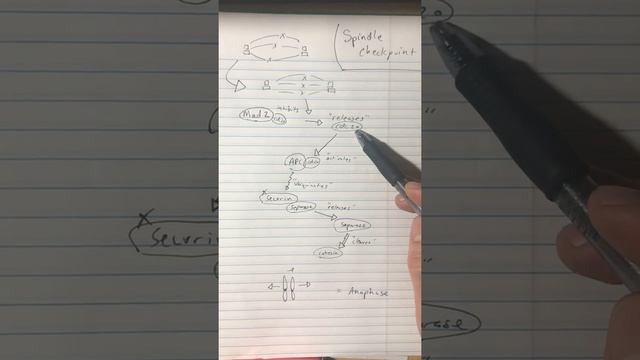 Spindle
Checkpoint
inhibits
Mad.2 cdc20
"releases"
cdc20
APC cdc20 "activates"
"ubiquinates"
Securin
Separase "releases"
Separase
"cleaves"
cohesin
= Anaphase